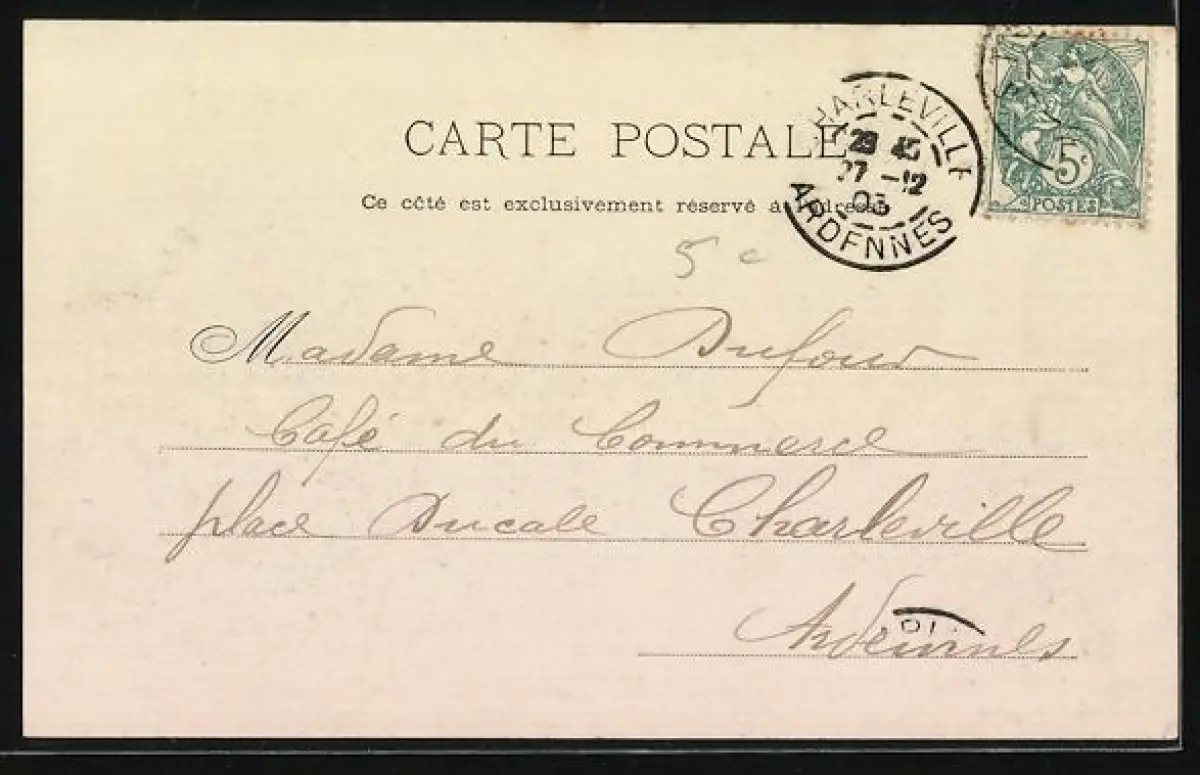 CARTE POSTALE
Ce côté est exclusivement réservé à l'adresse
CHARLEVILLE
27 -12
03
ARDENNES
5c
POSTES
5 c
Madame Dufour
Café du Commerce
place Ducale Charleville
Ardennes